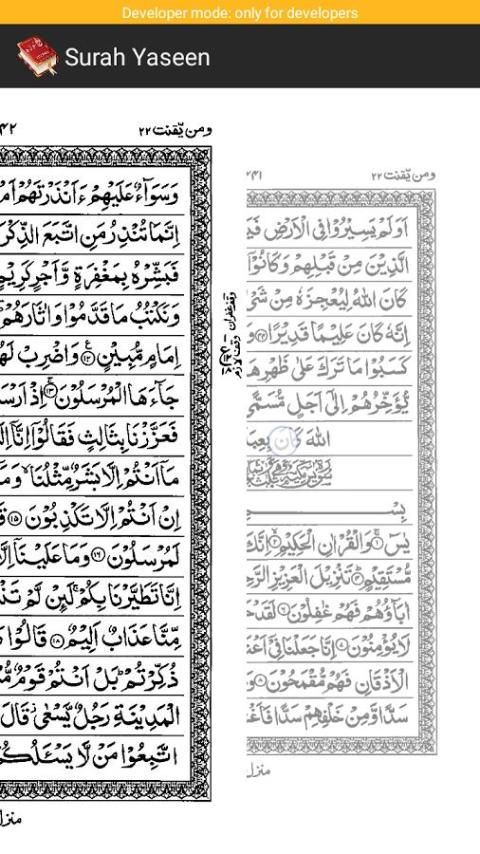 Developer mode: only for developers
Surah Yaseen
ومن يقنت ٢٢
٤٢
وَسَوَآءٌ عَلَيْهِمْ ءَاَنْذَرْتَهُمْ اَمْ
اِنَّمَا تُنْذِرُ مَنِ اتَّبَعَ الذِّكْرَ
فَبَشِّرْهُ بِمَغْفِرَةٍ وَّاَجْرٍ كَرِيْمٍ
وَنَكْتُبُ مَا قَدَّمُوْا وَاٰثَارَهُمْ
اِمَامٍ مُّبِيْنٍ ﴿١٢﴾ وَاضْرِبْ لَهُمْ
جَآءَهَا الْمُرْسَلُوْنَ ﴿١٣﴾ اِذْ اَرْسَ
فَعَزَّزْنَا بِثَالِثٍ فَقَالُوْٓا اِنَّآ اِلَ
مَآ اَنْتُمْ اِلَّا بَشَرٌ مِّثْلُنَا وَمَ
اِنْ اَنْتُمْ اِلَّا تَكْذِبُوْنَ ﴿١٥﴾ قَ
لَمُرْسَلُوْنَ ﴿١٦﴾ وَمَا عَلَيْنَآ اِلَّا
اِنَّا تَطَيَّرْنَا بِكُمْ لَئِنْ لَّمْ تَنْ
مِّنَّا عَذَابٌ اَلِيْمٌ ﴿١٨﴾ قَالُوْا
ذُكِّرْتُمْ بَلْ اَنْتُمْ قَوْمٌ مُّ
الْمَدِيْنَةِ رَجُلٌ يَّسْعٰى قَالَ
اتَّبِعُوْا مَنْ لَّا يَسْـَٔلُكُمْ
منزل
ومن يقنت ٢٢
٤٤١
اَوَلَمْ يَسِيْرُوْا فِى الْاَرْضِ فَيَ
الَّذِيْنَ مِنْ قَبْلِهِمْ وَكَانُوْٓا
كَانَ اللّٰهُ لِيُعْجِزَهٗ مِنْ شَىْ
اِنَّهٗ كَانَ عَلِيْمًا قَدِيْرًا ﴿٤٤﴾ وَ
كَسَبُوْا مَا تَرَكَ عَلٰى ظَهْرِهَا
يُّؤَخِّرُهُمْ اِلٰٓى اَجَلٍ مُّسَمًّى
اللّٰهَ كَانَ بِعِبَ
بِسْــمِ
يٰسٓ ﴿١﴾ وَالْقُرْاٰنِ الْحَكِيْمِ ﴿٢﴾ اِنَّكَ
مُّسْتَقِيْمٍ ﴿٤﴾ تَنْزِيْلَ الْعَزِيْزِ الرَّحِ
اٰبَآؤُهُمْ فَهُمْ غٰفِلُوْنَ ﴿٦﴾ لَقَدْ حَ
لَا يُؤْمِنُوْنَ ﴿٧﴾ اِنَّا جَعَلْنَا فِىْٓ اَعْنَ
الْاَذْقَانِ فَهُمْ مُّقْمَحُوْنَ ﴿٨﴾ وَ
سَدًّا وَّمِنْ خَلْفِهِمْ سَدًّا فَاَغْ
منزل